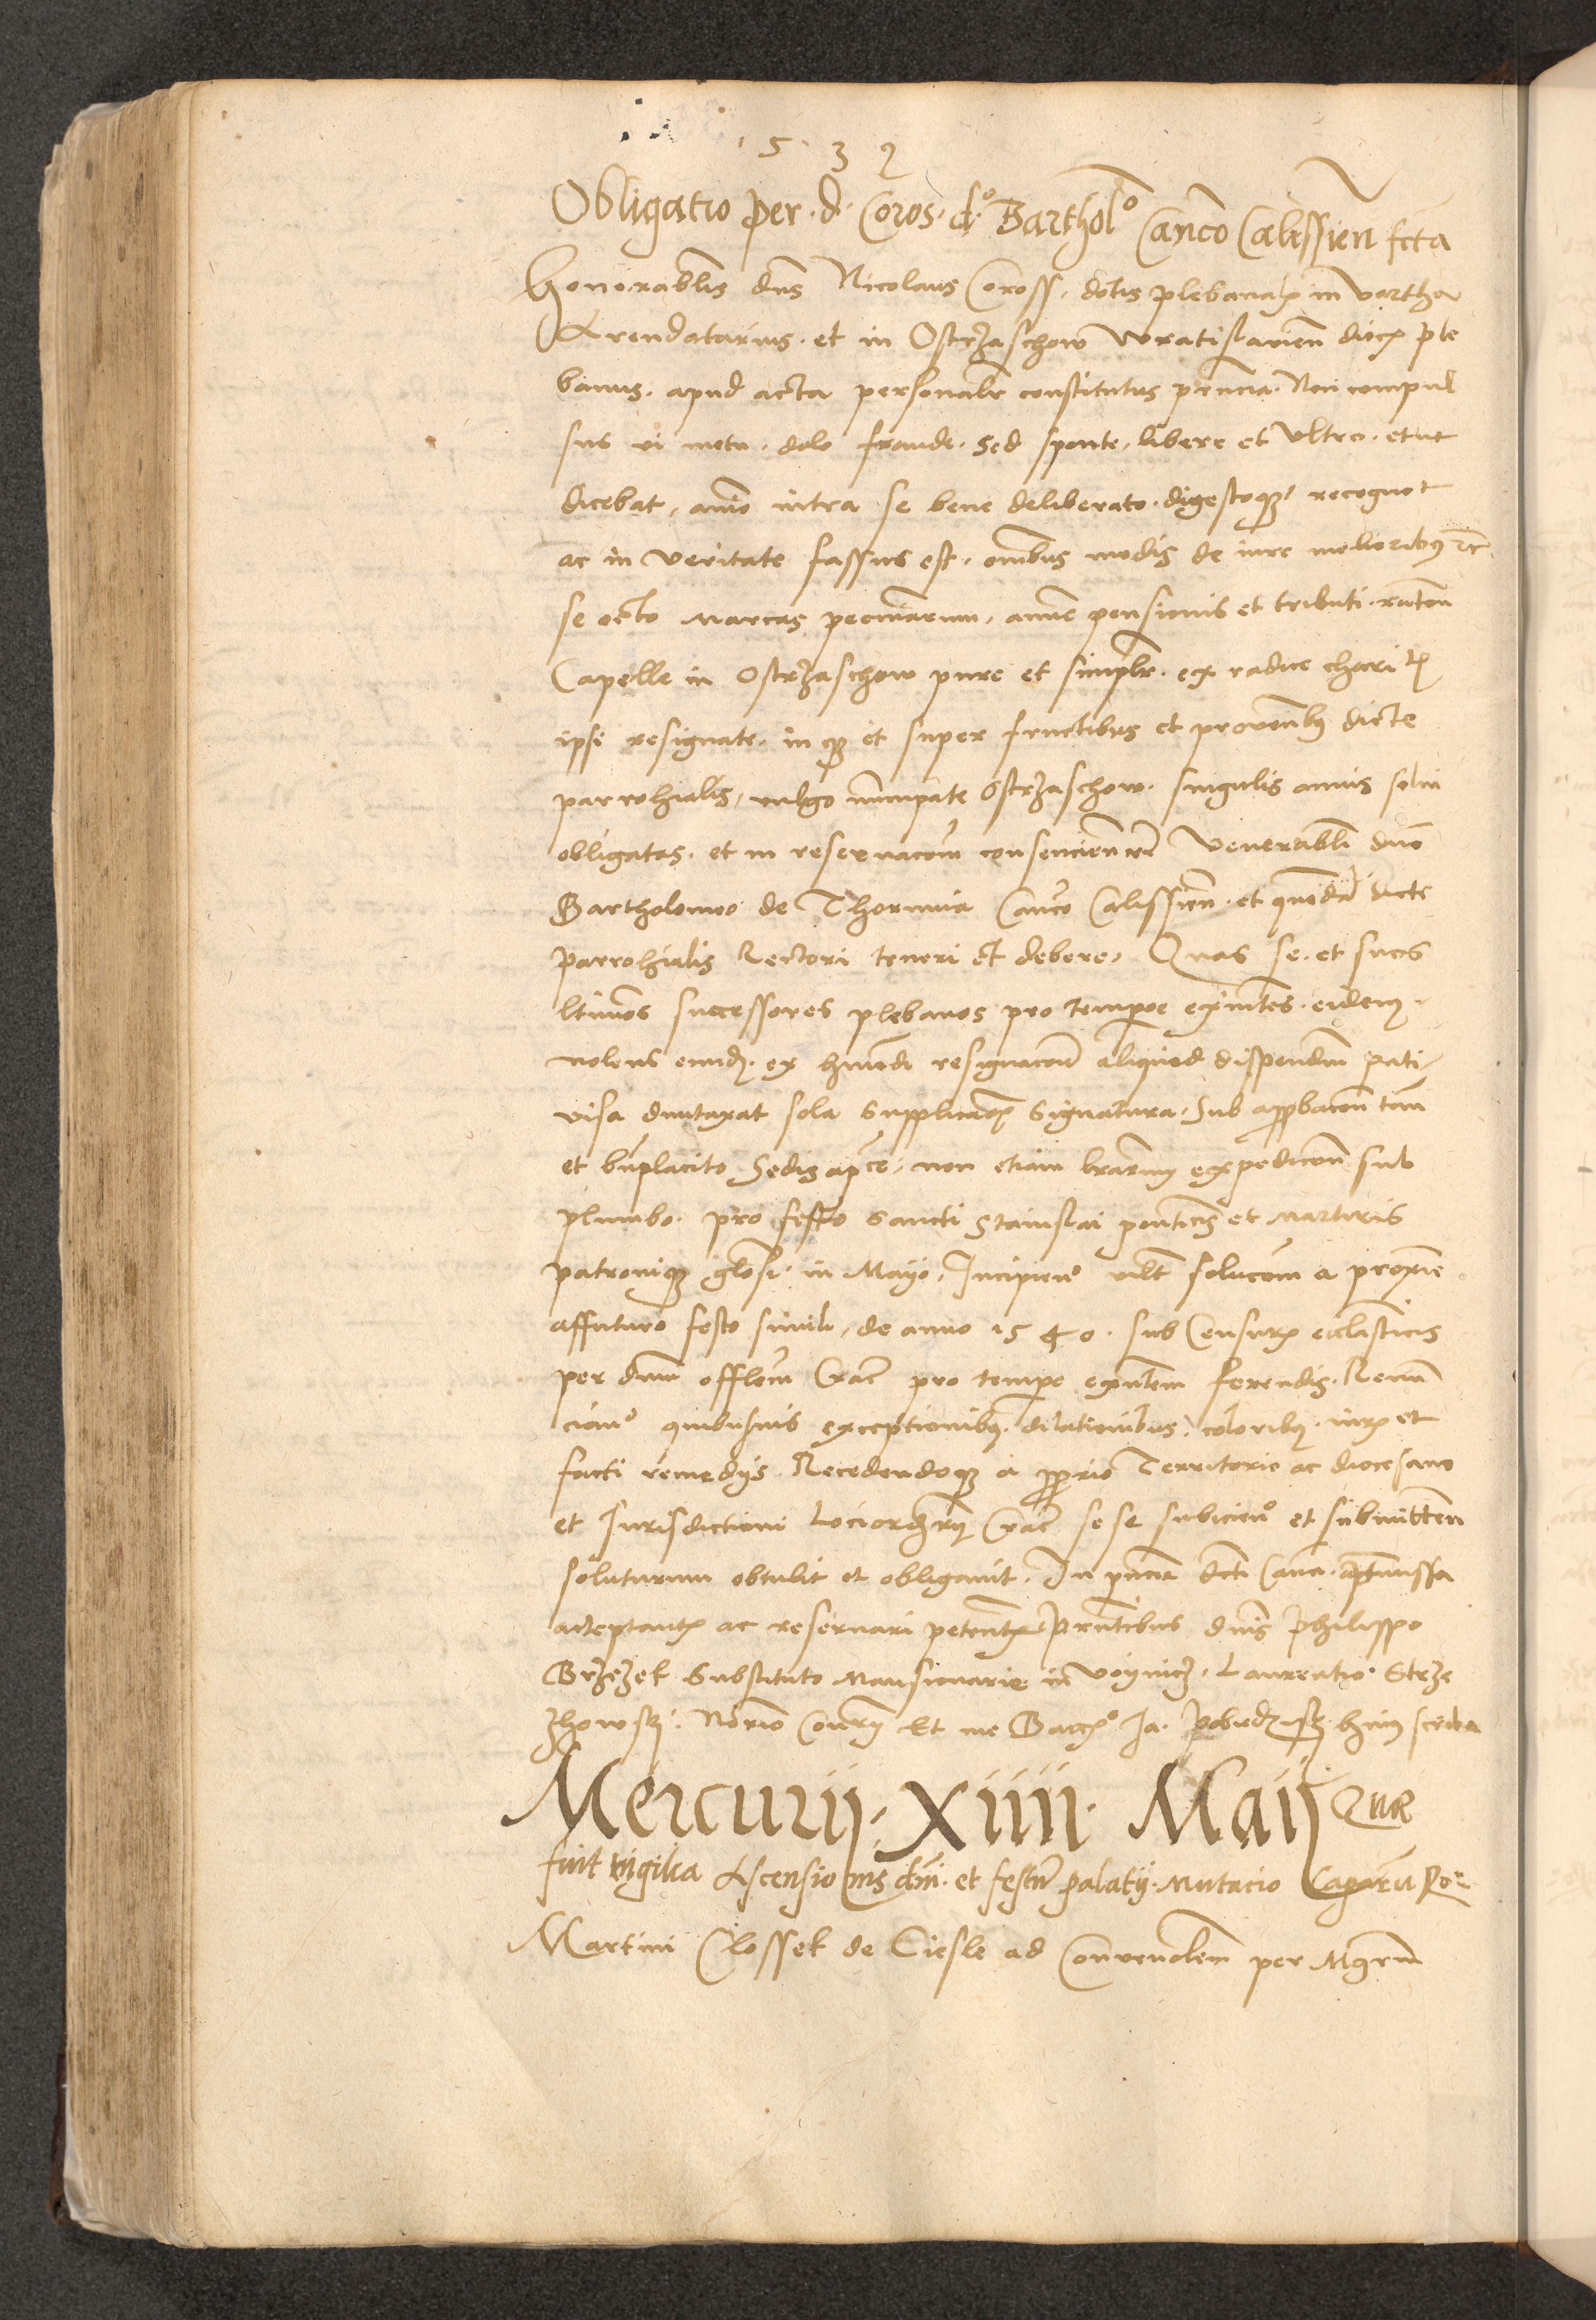 1532
Obligatio per .d. Coros. d.o Barthol.o Canco Calissien fcta
Honorablis dns Nicolaus Coross, dotis plebanal in Vartha
Arendatarius. et in Ostrzaschow Wratislavien dioc ple
banus. apud acta personalr constitutus prncia. Non compul
sus vi metu. dolo fraude. Sed sponte, libere et Ultro. et ut
dicebat, anio intra se bene deliberato. digestoq recognot
ac in Veritate fassus est. omibus modis de iure melioribus etc
se octo marcas pecuniarum, annue pensionis et tributi. ratione
Capelle in Ostrzaschow pure et simplr. ex radice
ipsi resignate. in q et super fructibus et proventibus dicte
parrohialis, vulgo nuncupate Ostrzaschow. singulis annis solvi
obligatas. et in reservacom Venerabli dno
Bartholomeo de Thornua Canco Calissien. et quondam dicte
parrohialis Rectori teneri et debere. Quas se. et suos
ltimos successores plebanos pro tempore exintes. eidem
nolens eiusd. ex hmodi resignacone aliquod dispendium pati
visa duntaxat sola Supplicacois Signatura. Sub approbacone tam
et bnplacito Sedis aplce, non etiam lrarum expedicone sub
plumbo. pro festo Sancti Stanislai pontificis et martiris
patroniq glosi. in Mayo. Incipien vilt solucom a proxime
affuturo festo simili, de anno 1540. sub Censuris ecclasticis
per dnum offlem Crac pro tempore exntem ferendis. Renun
cian quibusvis exceptionibus. dilationibus. coloribus. iuris et
facti remedijs. Recedendoq a pprio Territorio ac diocesano
et Jurisdictioni Lociordrij Crac se se subicien et submitten
soluturum obtulit et obligavit. In pncia dcti Canci. pmissa
acceptantis ac reservari petentis. Prntibus dnis Philippo
Brzezek Substituto Mansionarie in Voynicz. Laurentio. Strze
zhowsky. Norio Conry Et me
Mercurij. Xiiii. Maij Quae
fuit vigilia Ascensionis dni. et festum palatij. Mutacio Caparu Ro
Martini Clossek de Ciesle ad Convenolem per Mgrm